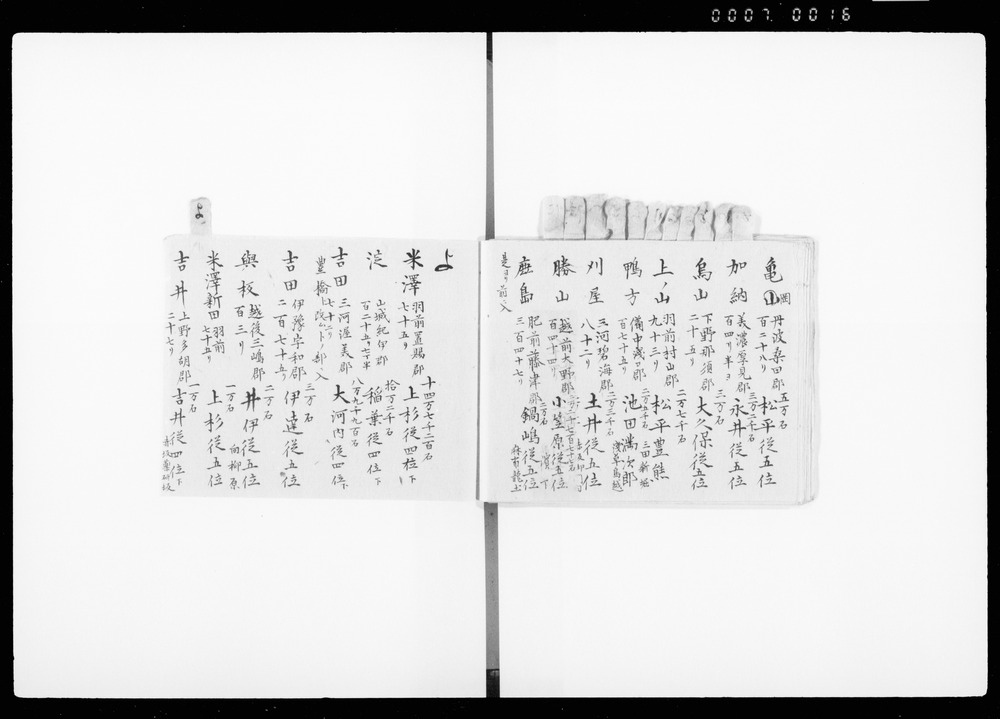 0007 0016
亀山 岡 丹波桑田郡 五万石
百二十八り 松平従五位
加納 美濃厚見郡 三万二千石
百四り半ヨ 永井従五位
烏山 下野那須郡 三万石
二十五り 大久保従五位
上ノ山 羽前村山郡 二万七千石
九十三り 松平豊熊
鴨方 備中浅口郡 二万五千石 三田新堀
百七十五り 池田満次郎
刈屋 三河碧海郡 二万三千石 浅草鳥越
八十二り 土井従五位
勝山 越前大野郡 二万二千七百七十七石
百四十四り 小笠原従五位
鹿島 肥前藤津郡 二万石
三百四十七り 鍋嶋従五位
是ヨリ前ヘ入
よ
米澤 羽前置賜郡 十四万七千二百石
七十五り 上杉従四位下
淀 山城紀伊郡 拾万二千石
百二十五り七丁半 稲葉従四位下
吉田 三河渥美郡 八万九千九百石
七十二り 大河内従四位下
豊橋ト改ム ト部ヘ入
吉田 伊豫宇和郡 三万石
二百七十五り 伊達従五位
與板 越後三嶋郡 二万石
百三り 井伊従五位
米澤新田 羽前 一万石 向柳原
七十五り 上杉従五位
吉井 上野多胡郡 一万石
二十七り 吉井従四位下
よ